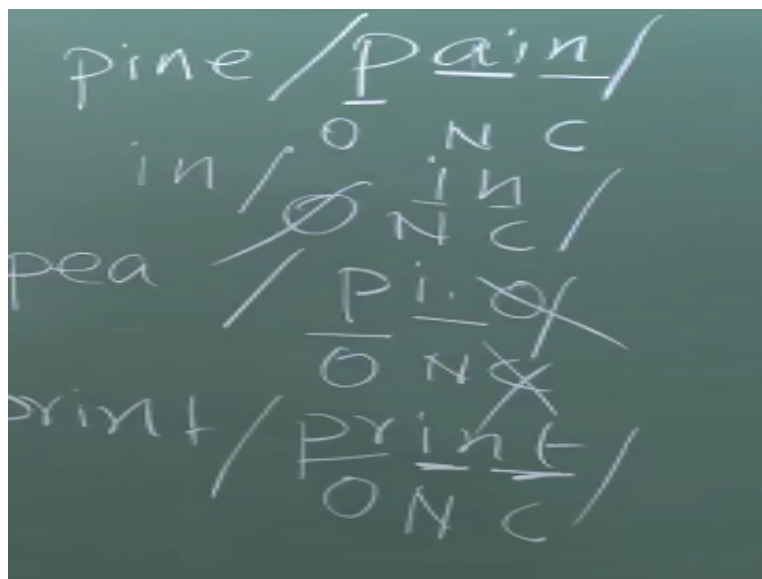 pine /pain/
O N C
in / Ø in /
N C
pea / pi. Ø
O N C
print / print /
O N C